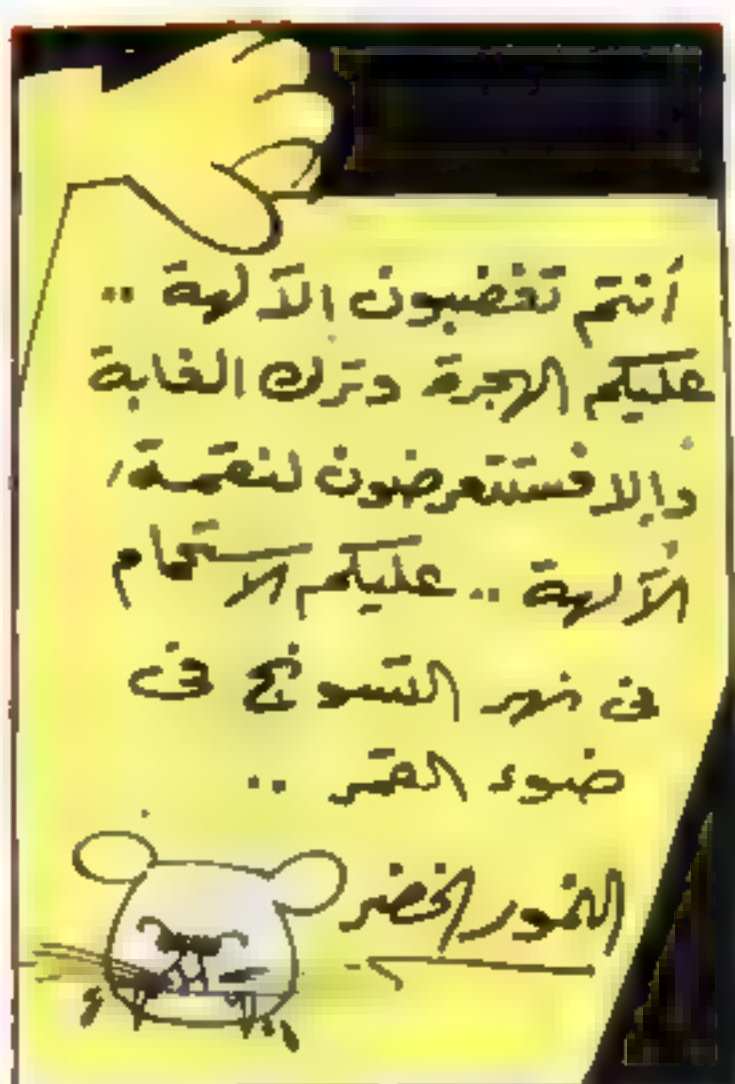 أنتم تغضبون الآلهة ..
عليكم الهجرة وترك الغابة
وإلا فستتعرضون لنقمة
الآلهة .. عليكم الاستحمام
فى نهر التسونج فى
ضوء القمر ..
النمور الخضر